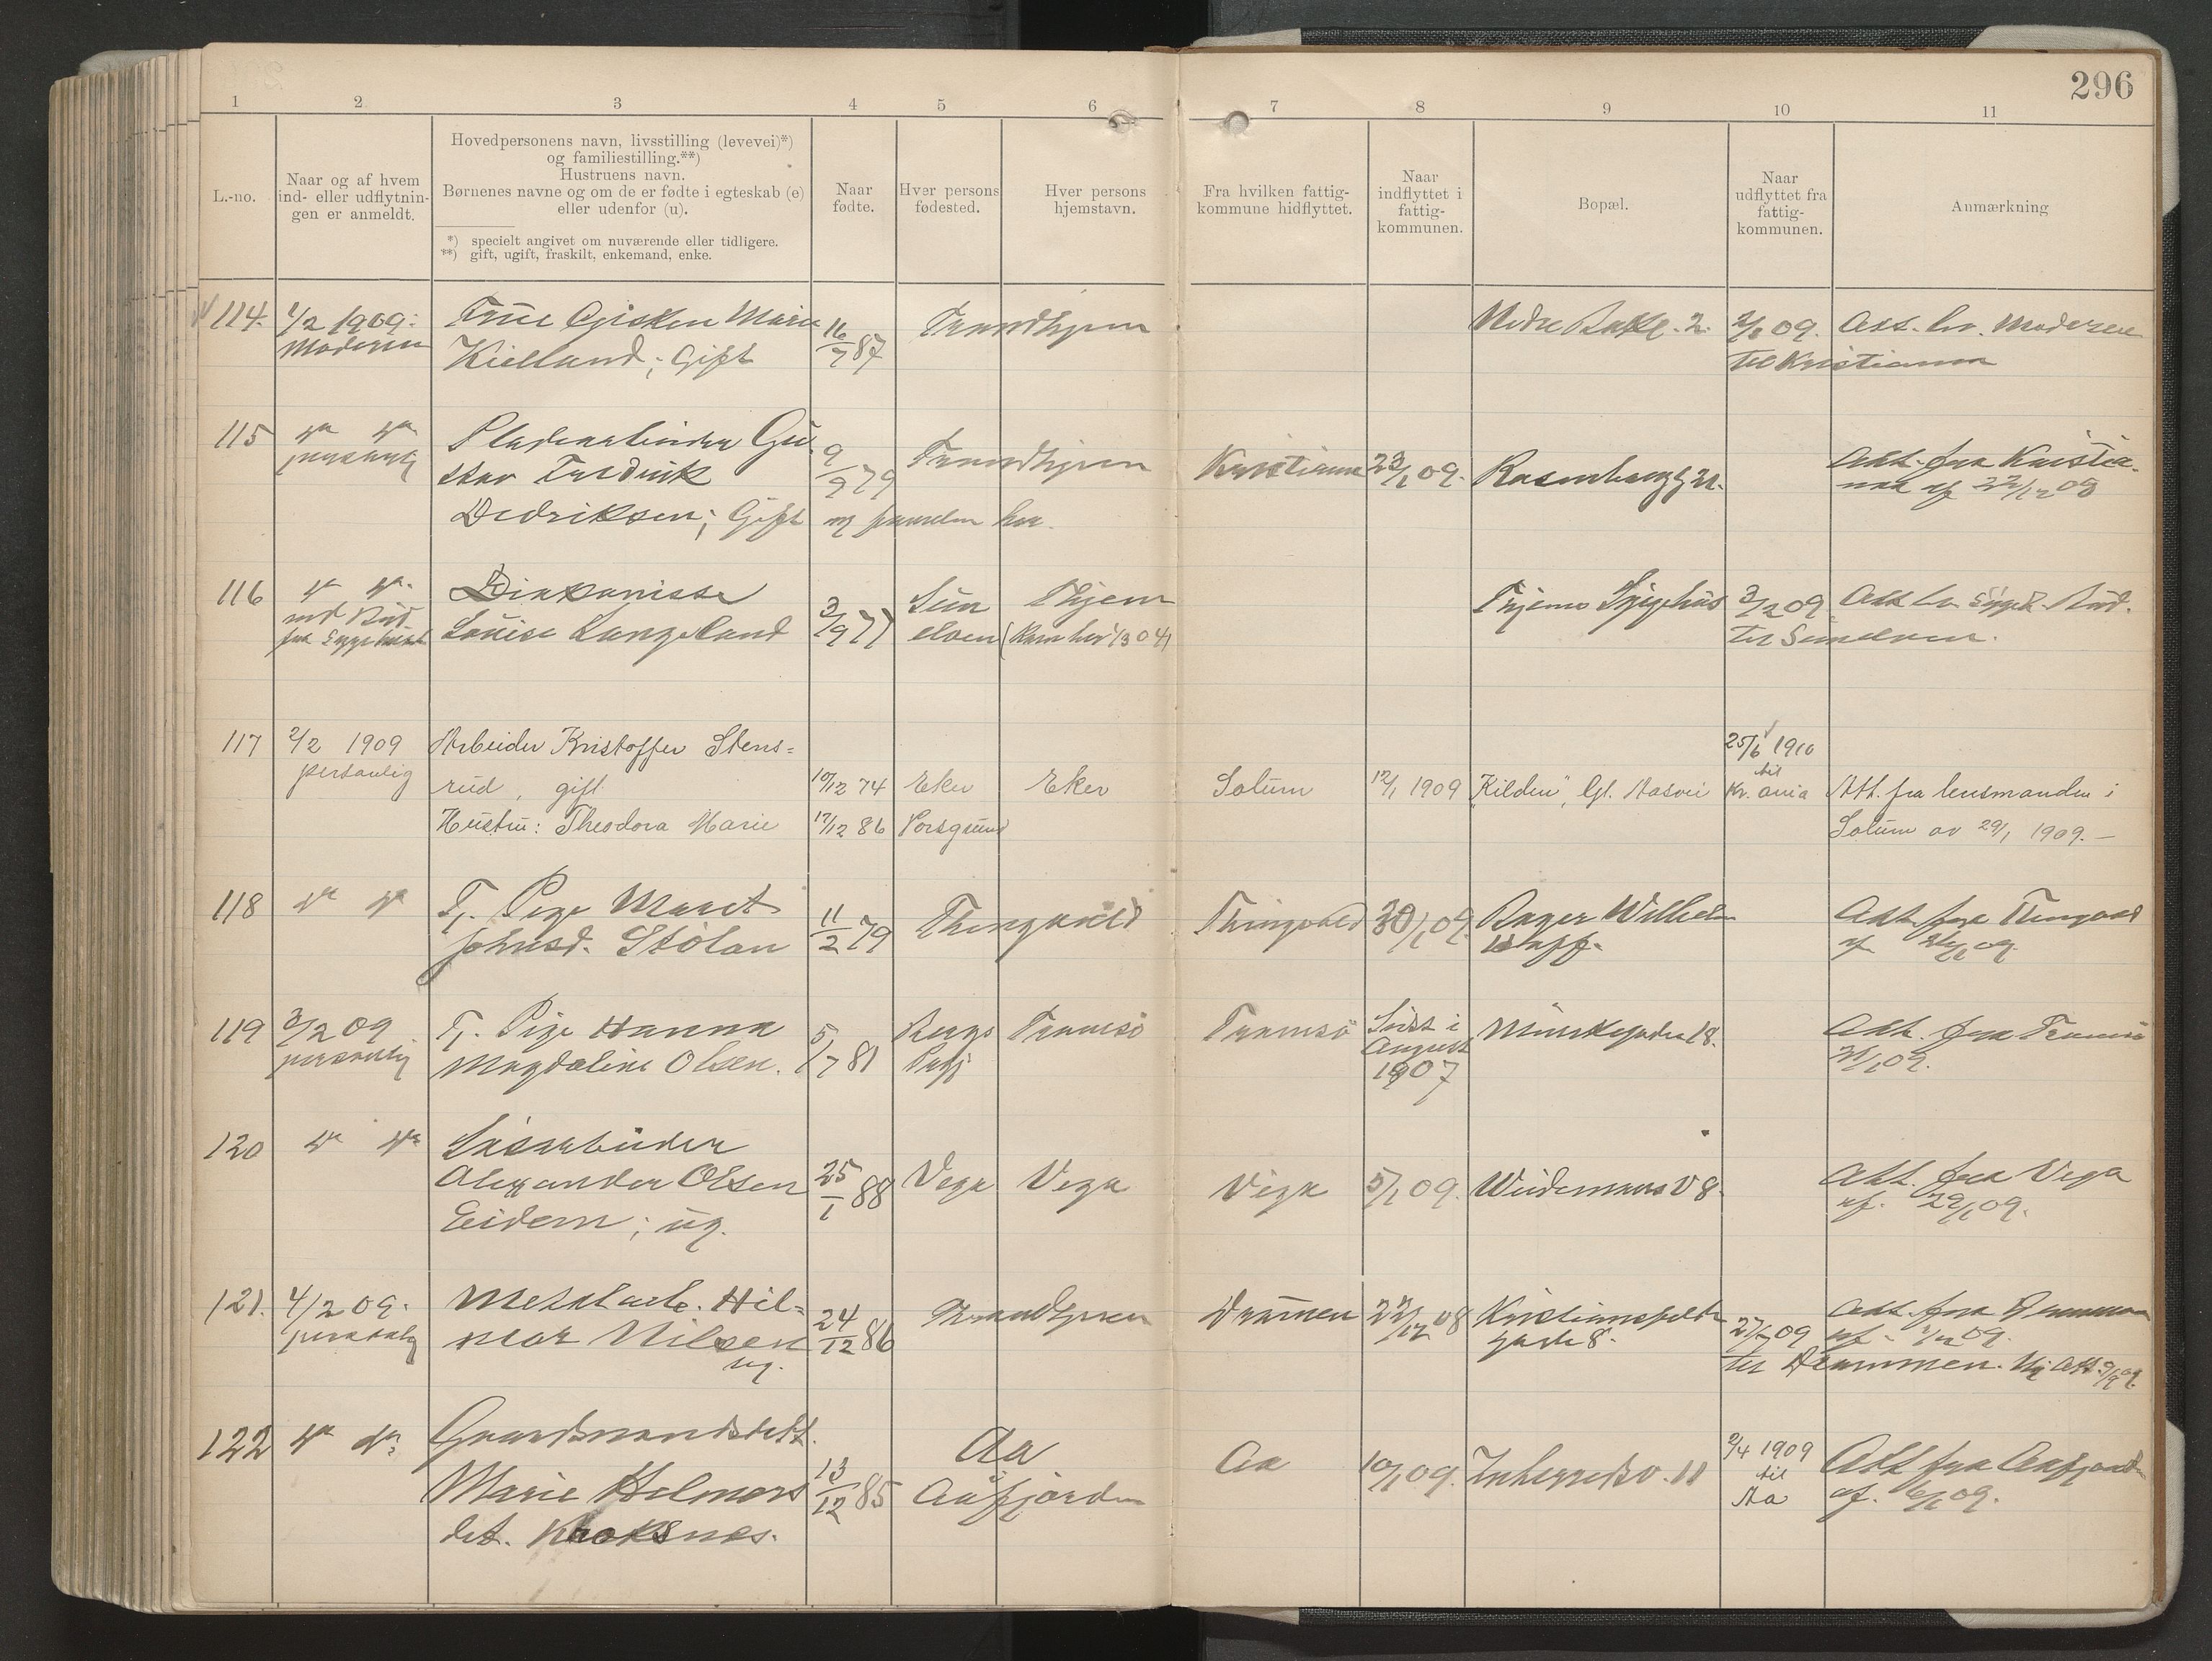 296
1 2 3 4 5 6 7 8 9 10 11
L.-no.
Naar og af hvem
ind- eller udflytnin-
gen er anmeldt.
Hovedpersonens navn, livsstilling (levevei)*)
og familiestilling.**)
Hustruens navn.
Børnenes navne og om de er fødte i egteskab (e)
eller udenfor (u).
*) specielt angivet om nuværende eller tidligere.
**) gift, ugift, fraskilt, enkemand, enke.
Naar
fødte.
Hver persons
fødested.
Hver persons
hjemstavn.
Fra hvilken fattig-
kommune hidflyttet.
Naar
indflyttet i
fattig-
kommunen.
Bopæl.
Naar
udflyttet fra
fattig-
kommunen.
Anmærkning
114.
1/2 1909.
Moderen
Frue Gisken Marie
Kielland; Gift
16/7 87
Trondhjem
Nedre Bakkl. 2.
2/2 09.
Til Kristiania
Att. lev. Moderen
115
da da
personlig
Gu
stav Fredrik
Dedriksen; Gift
9/9 79
Trondhjem
Kristiania
23/1 09.
Rosenborgg 21.
Att. fra Kristia-
nia af 22/12 08
116
da da.
Diakonisse
Louise Langeland
3/9 77
Sun
elven
Thjem
Thjems Sygehus
3/2 09
Til Sunelven.
117
2/2 1909
personlig
Arbeider Kristoffer Stens=
rud, gift
Hustru: Theodora Marie
10/12 74
17/12 86
Eker
Porsgrund
Eker
Solum
12/1 1909
"Kilden", Gl. Aasvei
25/6 1910
til
Kr.ania
Att. fra lensmanden i
Solum av 29/1 1909. —
118
da da
Tj. Pige Marit
Johnsd. Stølan
11/2 79
Thingvold
Thingvold
30/1 09.
Bager Wilhelm
Att. fra Thingvold
119
3/2 09
personlig
Tj. Pige Hanna
Magdaline Olsen.
5/7 81
Tromsø
Tromsø
Sidst i
August
1907
Munkegaden 18.
Att. fra Tromsø
120
da da
Løsarbeider
Alexander Olsen
Eidem; ug.
25/1 88
Vega
Vega
Vega
5/1 09.
Weidemans V 8.
Att. fra Vega
af. 29/1 09.
121.
4/2 09.
personlig
Metalarb. Hil=
mar Nilsen
ug.
24/12 86
Trondhjem
Drammen
Kristiansfeldts
gade 8.
Att. fra Drammen
Til Drammen.
122
da do
Gaardmandsdatt.
Marie Helmers
dat. Kroksnes.
13/12 85
Aa
Aafjorden
Aa
10/1 09.
Inherredsv. 11
2/4 1909
til
Aa
Att fra Aafjorden
af. 6/1 09.